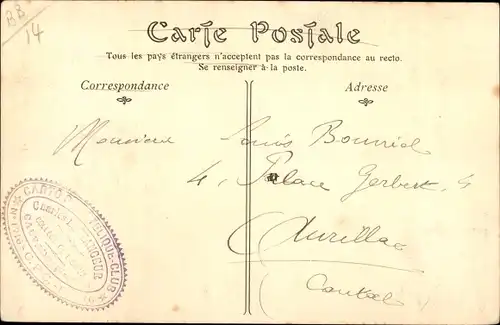 BB
14
Carte Postale
Tous les pays étrangers n'acceptent pas la correspondance au recto.
Se renseigner à la poste.
Correspondance
Adresse
Monsieur Louis Bouniol
4, Palace Gerbert, 4
Aurillac
Cantal
CARTOPHILIQUE-CLUB
Charles